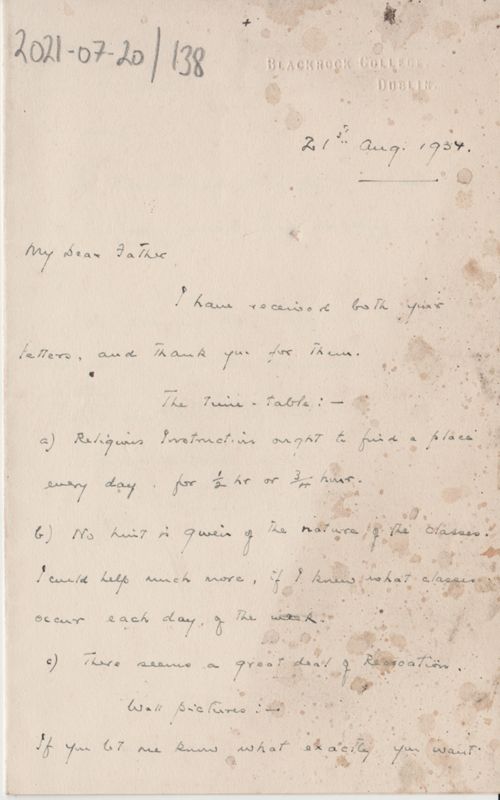 2021-07-20/138
BLACKROCK COLLEGE,
DUBLIN.
21st Aug. 1934.
My Dear Father
I have received both your
letters, and thank you for them.
The Time-table:—
a) Religious Instruction ought to find a place
every day, for ½ hr or ¾ hour.
b) No hint is given of the nature of the classes.
I could help much more, if I knew what classes
occur each day, of the week.
c) There seems a great deal of Recreation.
Wall pictures:—
If you let me know what exactly you want